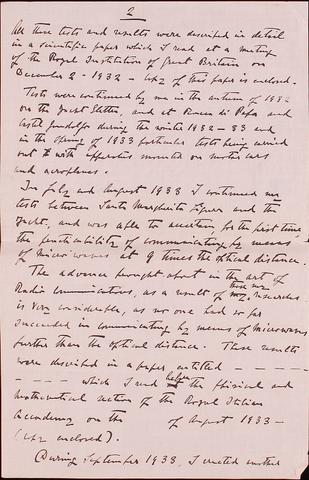 2
All these tests and results were described in detail
in a scientific paper which I read at a meeting
of the Royal Institution of Great Britain on
December 2 - 1932 - copy of this paper is enclosed.
Tests were continued by me in the autumn of 1932
on the yacht Elettra, and at Rocca di Papa and
Castel Gandolfo during the winter 1932-33 and
in the spring of 1933 particular tests being carried
out with apparatus mounted on motor cars
and aeroplanes.
In July and August 1933 I continued my
tests between Santa Margherita Ligure and the
Yacht, and was able to ascertain, for the first time,
the practicability of communicating by means
of micro waves at 9 times the optical distance.
The advance brought about in the art of
Radio Communications, as a result of these my researches
is very considerable, as no one had so far
succeeded in communicating by means of microwaves
further than the optical distance. These results
were described in a paper entitled - - - -
- - - - - which I read before the physical and
mathematical section of the Royal Italian
Academy on the of August 1933 -
(copy enclosed).
During September 1933, I erected another